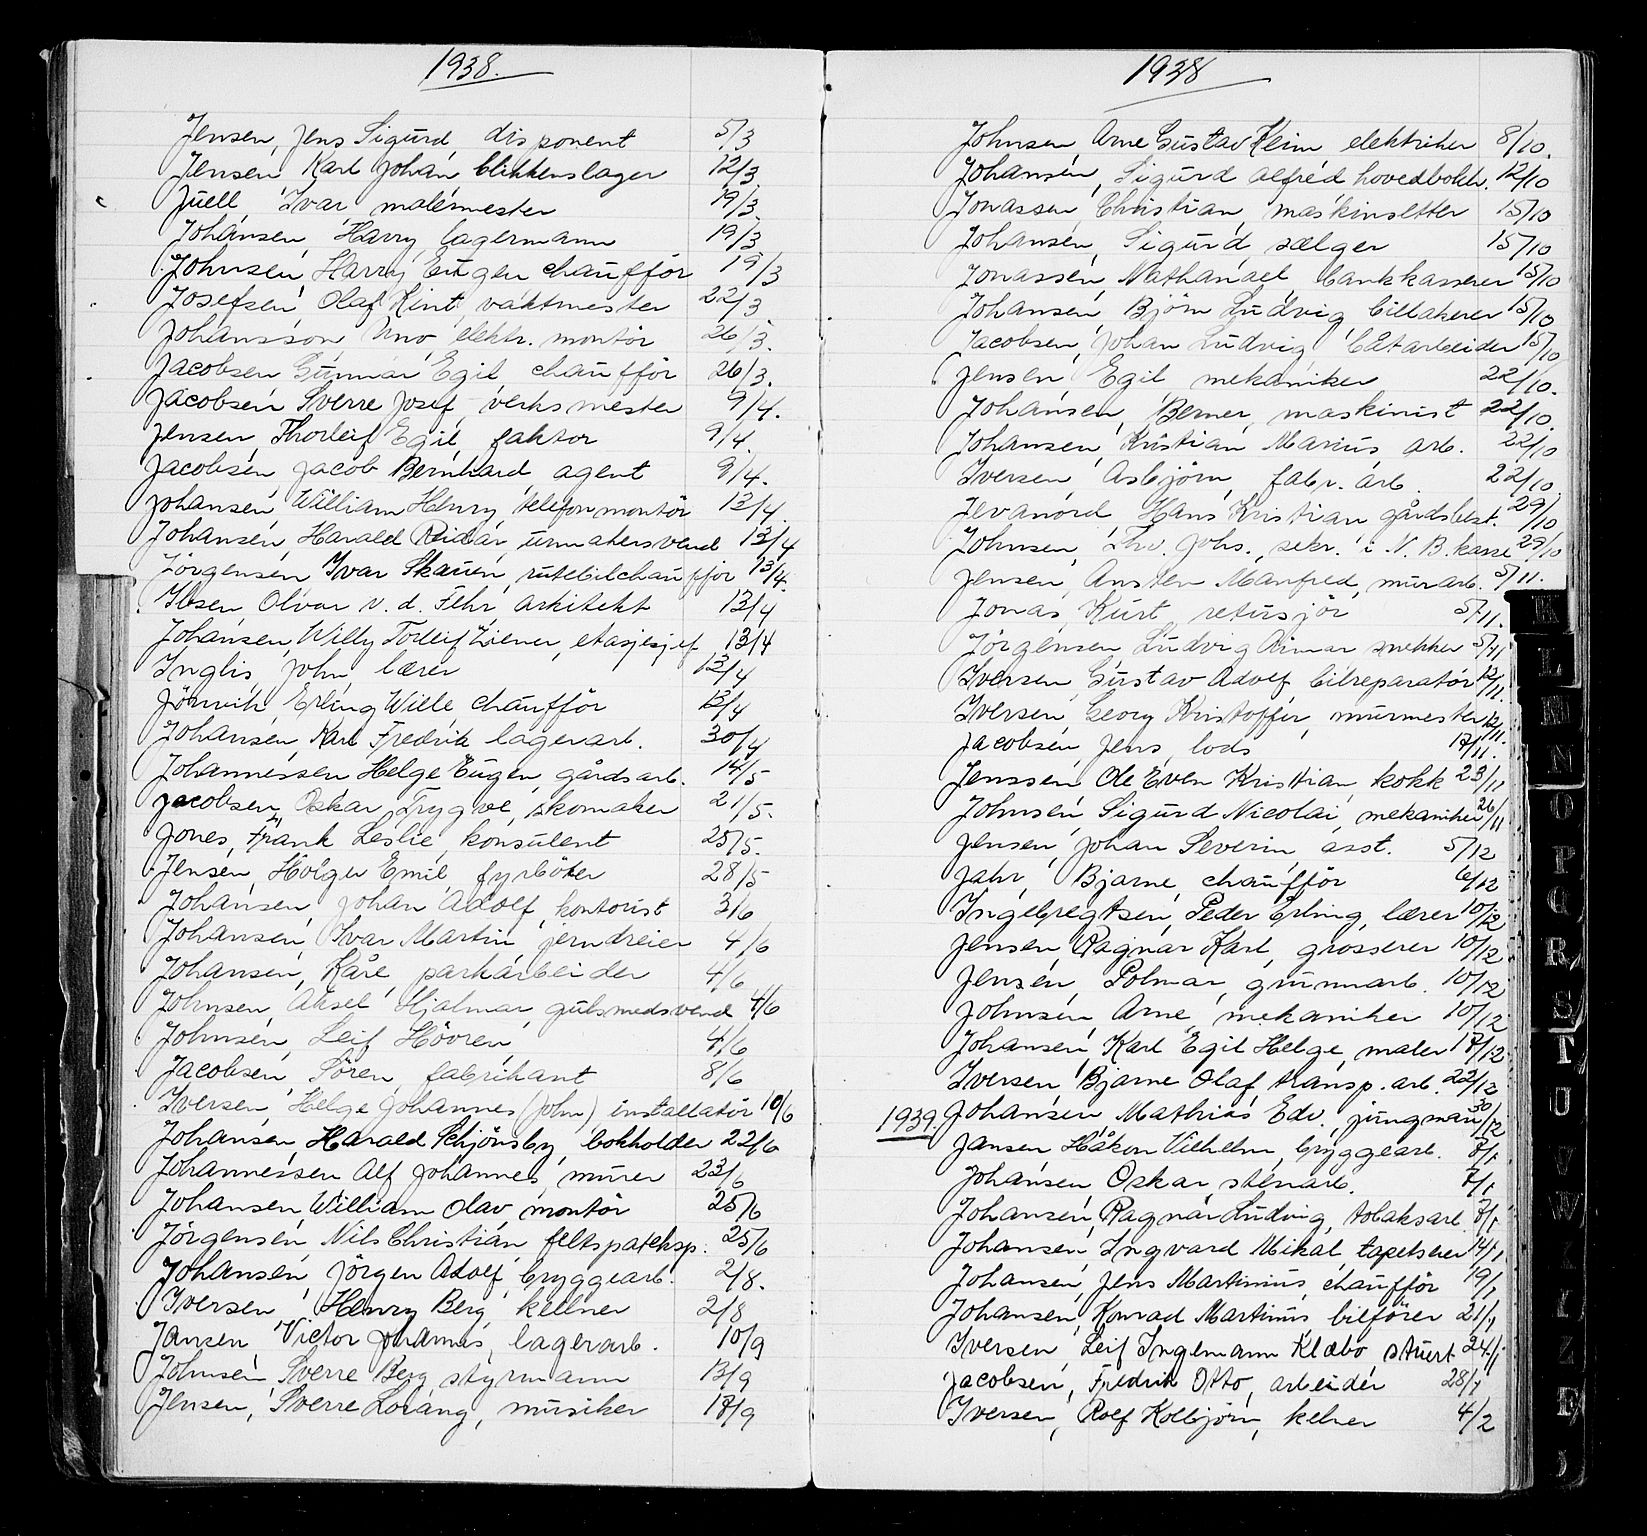 1938.
Jensen, Jens Sigurd, disponent 5/3
Jensen Karl Johan blikkenslager 12/3
Juell Ivar malermester 19/3
Johansen, Harry, lagermann 19/3
Johnsen, Harry Eugen chaufför 19/3
Josefsen Olaf Kint, vaktmester 22/3.
Johansson Uno, elektr. montör 26/3.
Jacobsen Gunnar Egil chauffför 26/3.
Jacobsen Sverre Josef, verksmester 9/4.
Jensen, Thorleif Egil, faktor 9/4.
Jacobsen Jacob Bernhard, agent 9/4.
Johansen William Henry telefonmontör 13/4
Johansen, Harald Reidar, urmakersvend 13/4
Jörgensen Ivar Skauen, rutebilchauffør 13/4.
Ibsen Olvar v. d. Fehr, arkitekt 13/4
Johansen, Willy Torleif Ziener, etasjesjef 13/4
Inglis, John, lærer 13/4
Jönvik, Erling Wille chauffför 13/4
Johansen, Karl Fredrik lagerarb. 30/4
Johannessen Helge Eugen, gårdsarb. 14/5
Jacobsen, Oskar Trygve, skomaker 21/5.
Jones, Frank Leslie, konsulent 25/5.
Jensen, Holger Emil fyrböter 28/5
Johansen, Johan Adolf, kontorist 3/6
Johansen, Ivar Martin, jerndreier 4/6
Johansen, Kåre, parkarbeider 4/6
Johnsen, Aksel Hjalmar, gulsmedsvend 4/6
Johnsen, Leif Hövren, 4/6
Jacobsen, Sören, fabrikant 8/6
Iversen, Helge Johannes (John) installatör 10/6
Johansen, Harald Schjönsby, bokholder 22/6
Johannessen Alf Johannes, murer 23/6
Johansen, William Olav, montör 25/6
Jörgensen, Nils Christian, feltspateksp. 25/6
Johansen, Jörgen Adolf, bryggearb. 2/8.
Iversen, Henry Berg, kellner 2/8
Jansen, Victor Johannes, lagerarb. 10/9
Johnsen, Sverre Berg, styrmann 13/9
Jensen, Sverre Lorang, musiker 17/9
1938
Johnsen, Arne Gustav Kleim elektriker 8/10.
Johansen, Sigurd Alfred hovedbokh. 12/10
Jonassen, Christian, maskinsetter 15/10
Johansen, Sigurd, sælger 15/10
Jonassen, Nathanael, bankkasserer 15/10
Johansen, Björn Ludvig, billakerer 15/10
Jacobsen, Johan Ludvig, båtarbeider 15/10
Jensen, Egil mekaniker 22/10.
Johansen, Berner, maskinist 22/10.
Johansen, Kristian Marius, arb. 22/10
Iversen, Asbjörn, fabr. arb. 22/10
Jevanord, Hans Kristian gårdsbest. 29/10
Johnsen, Thv. Johs., sekr. i N. B. kasse 29/10
Jensen, Ansten Manfred, murarb. 5/11.
Jonas, Kurt, retusjör 5/11.
Jörgensen, Ludvig Rimar snekker 5/11
Iversen, Gustav Adolf, bilreparatör 12/11.
Iversen, Georg Kristoffer, murmester 12/11.
Jacobsen, Jens, lods 17/11.
Jenssen, Ole Even Kristian, kokk 23/11
Johnsen, Sigurd Nicolai, mekaniker 26/11
Jensen, Johan Severin, asst. 5/12
Jahr, Bjarne, chauffför 6/12
Ingebregtsen, Peder Erling, lærer 10/12
Jensen, Ragnar Karl, grosserer 10/12
Jensen, Polmar, grunnarb. 10/12
Johnsen, Arne, mekaniker 10/12
Johansen, Karl Egil Helge, maler 17/12
Iversen, Bjarne Olaf, transp. arb. 22/12
Johansen, Mathias Edv., jungman 30/12
1939. Jansen Håkon Vilhelm, bryggearb. 7/1
Johansen Oskar stenarb. 7/1
Johansen, Ragnar Ludvig, tobaksarb. 7/1
Johansen, Ingvard Mikal, tapetserer 14/1
Johansen, Jens Martinius, chauffför 19/1
Johansen, Konrad Martinus, bilförer 21/1
Iversen, Leif Ingemann Klæbo, stuert 24/1
Jacobsen, Fredrik Otto, arbeider 28/1
Iversen, Rolf Kolbjörn, kelner 4/2
K
L
M
N
O
P
Q
R
S
T
U
V
W